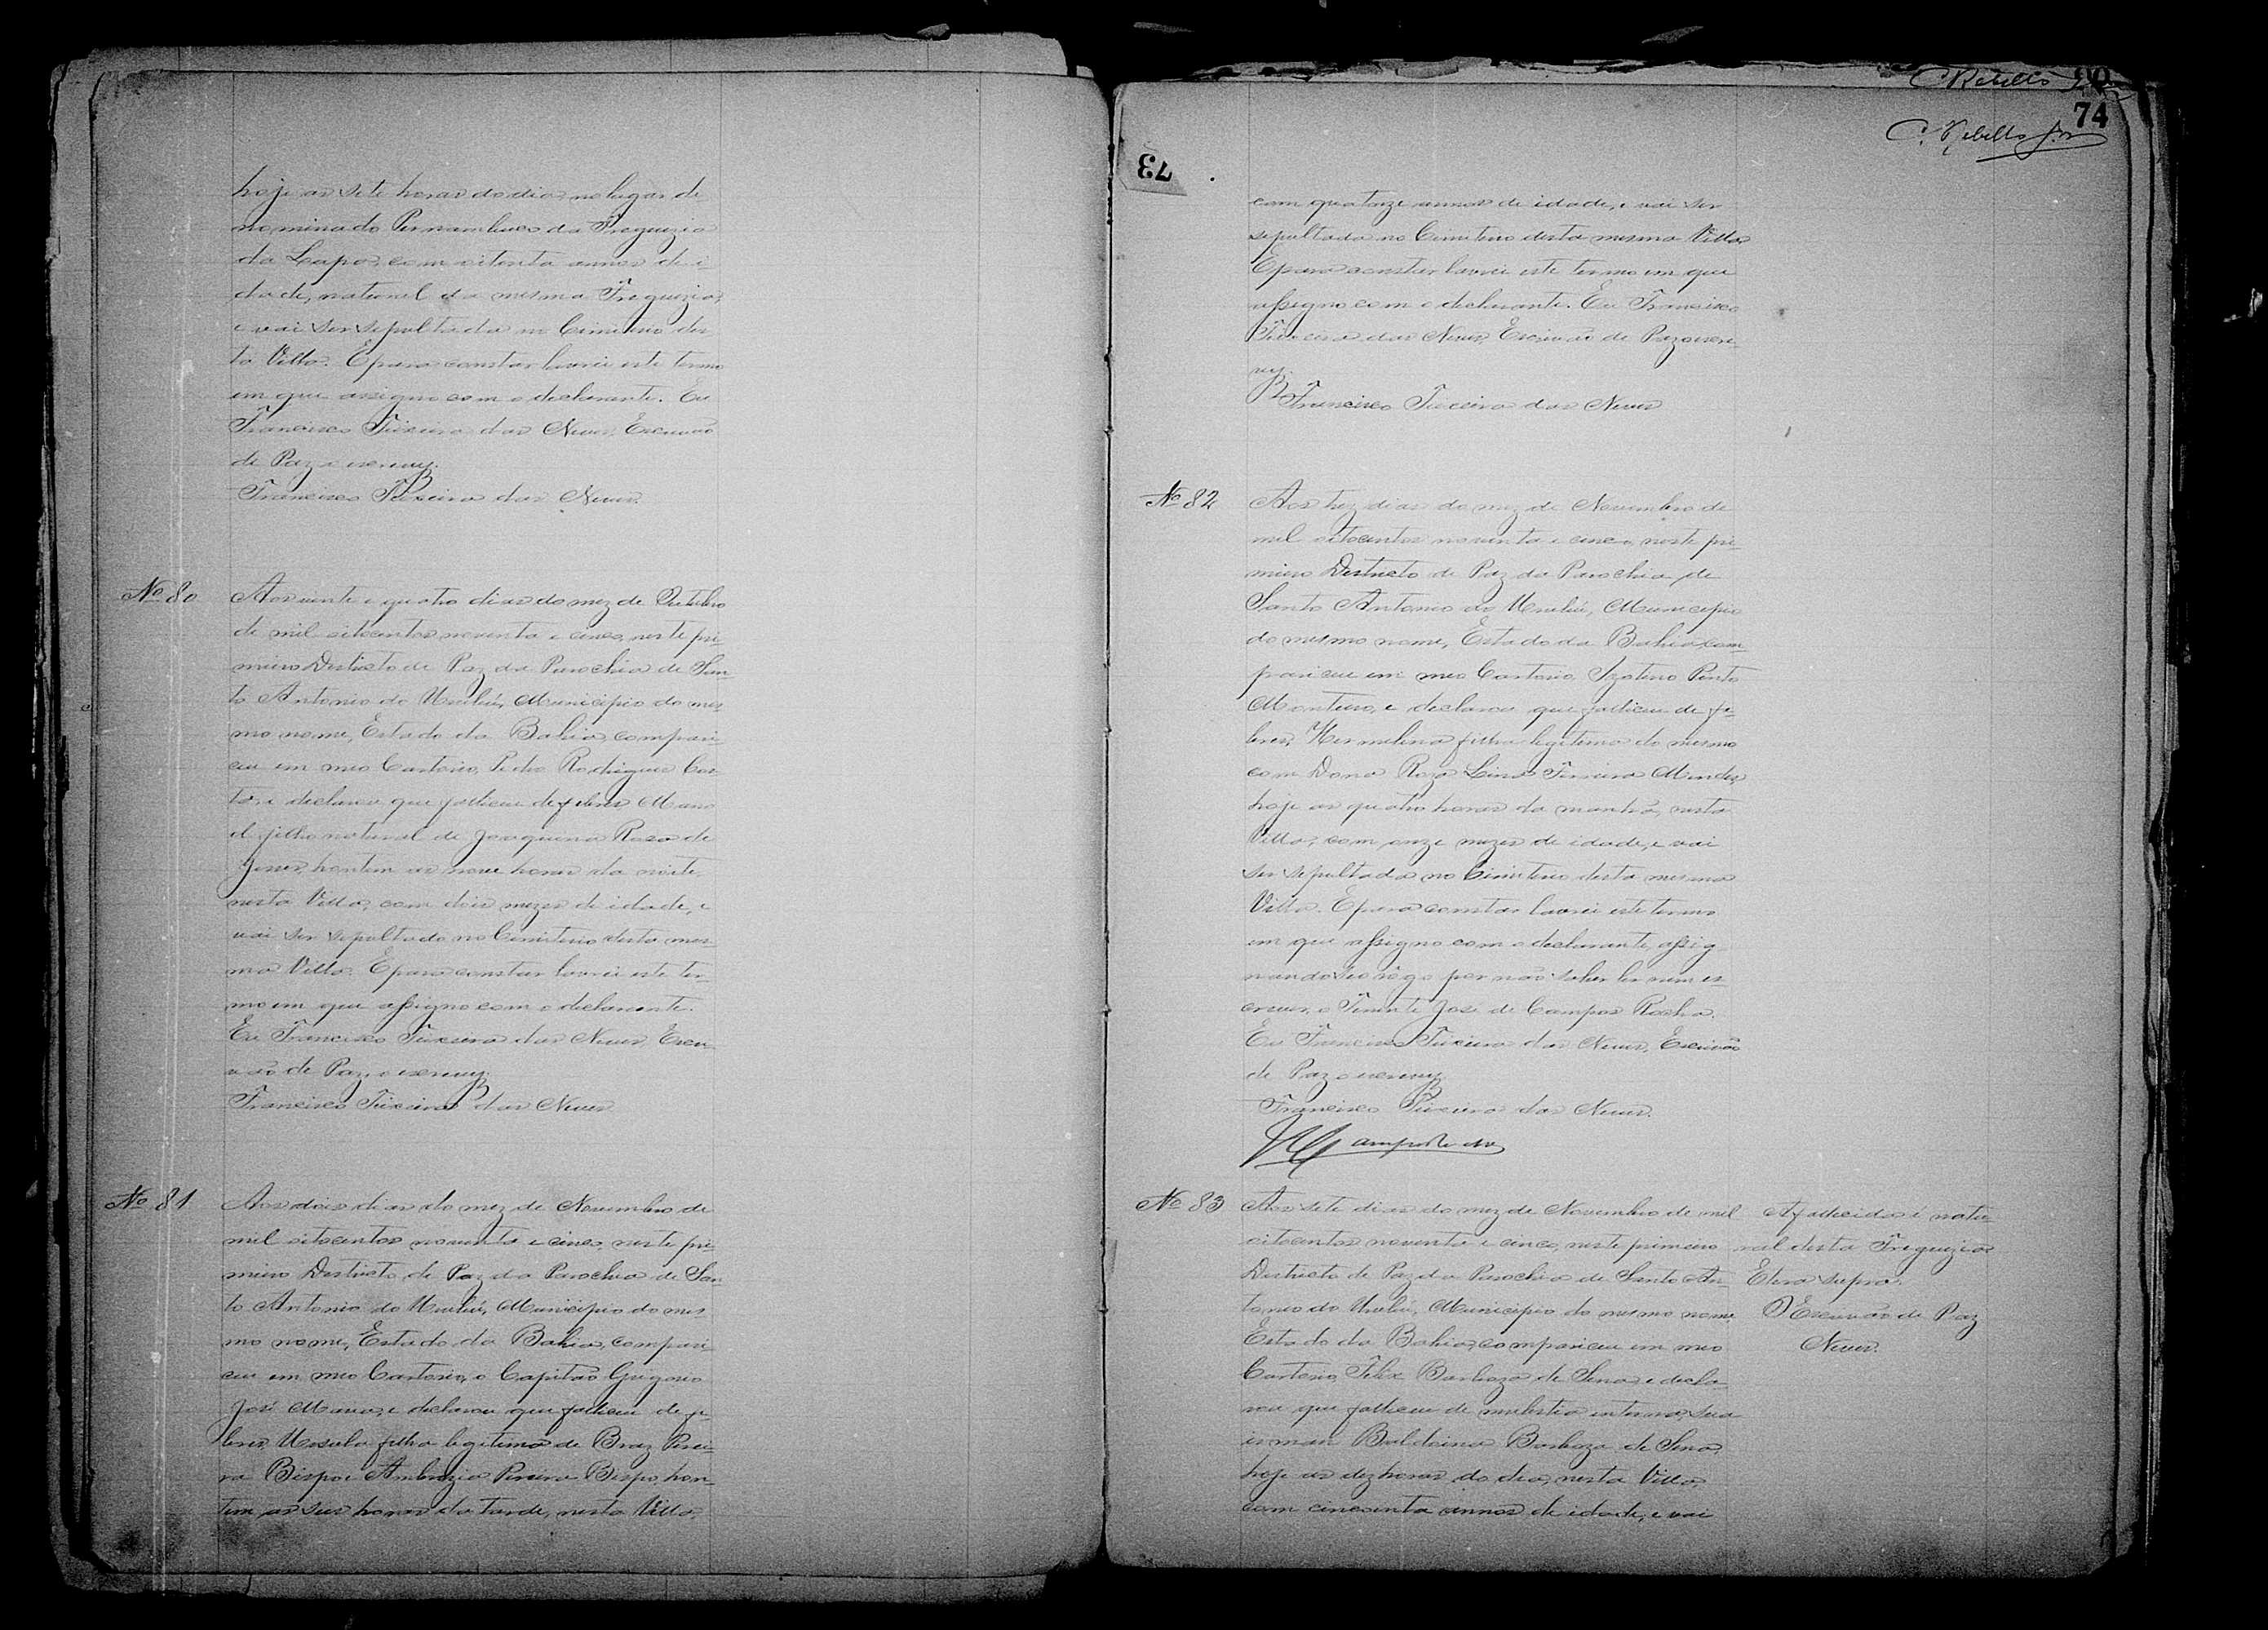 hoje as sete horas do dia, no lugar de
nominado Pernambuco da Freguezia
da Lapa, com oitenta annos de i-
dade, natural da mesma Freguezia,
e vai ser sepultada no Cimiterio des-
ta Villa. E para constar lavrei este termo
em que assigno com o declarante. Eu
Francisco Teixeira das Neves, Escrivão
de Paz o escrevy.
Francisco Teixeira das Neves.
No 80
Aos vinte e quatro dias do mez de Outubro
de mil oitocentos noventa e cinco, neste pri-
meiro Districto de Paz da Parochia de San
to Antonio do Urubú, Municipio do mes-
mo nome, Estado da Bahia, compare-
ceu em meo Cartorio, Pedro Rodrigues Cos-
ta, e declarou que falleceu de febres Mano
el filho natural de Joaquina Rosa de
Jesus, hontem as nove horas da noite,
nesta Villa, com dois mezes de idade, e
vai ser sepultado no Cimiterio desta mes-
ma Villa. E para constar lavrei este ter-
mo em que assigno com o declarante.
Eu Francisco Teixeira das Neves, Escri-
vão de Paz, o escrevy.
Francisco Teixeira das Neves
No 81
Aos dois dias do mez de Novembro de
mil oitocentos noventa e cinco, neste pri-
meiro Districto de Paz da Parochia de San
to Antonio do Urubú, Municipio do mes-
mo nome, Estado da Bahia, compare-
ceu em meo Cartorio, o Capitão Gregorio
José Maria, e declarou que falleceu de fe-
bres, Ursula filha legitima de Braz Perei-
ra Bispo e Ambrozia Pereira Bispo, hon-
tem as seis horas da tarde, nesta Villa,
C. Rebello
74
C. Rebello Jor
73
com quatorze annos de idade, e vai ser
sepultada no Cimiterio desta mesma Villa
E para constar lavrei este termo em que
assigno com o declarante. Eu Francisco
Teixeira das Neves, Escrivão de Paz o escre-
vy.
Francisco Teixeira das Neves
No 82
Aos trez dias do mez de Novembro de
mil oitocentos noventa e cinco, neste pri-
meiro Districto de Paz da Parochia de
Santo Antonio do Urubú, Municipio
do mesmo nome, Estado da Bahia, com-
pareceu em meo Cartorio, Pinto
Monteiro, e declarou que falleceu de fe-
bres, Hermelina filha legitima do mesmo
com Dona Roza Lina Ferreira Mendes,
hoje as quatro horas da manhã, nesta
Villa, com onze mezes de idade, e vai
ser sepultada no Cimiterio desta mesma
Villa. E para constar lavrei este termo
em que assigno com o declarante, assig-
nando seo rôgo por não saber ler nem es-
crever, o Tenente José de Campos Rocha.
Eu Francisco Teixeira das Neves, Escrivão
de Paz o escrevy
Francisco Teixeira das Neves.
No 83
Aos sete dias do mez de Novembro de mil
oitocentos noventa e cinco, neste primeiro
Districto de Paz da Parochia de Santo An-
tonio do Urubú, Municipio do mesmo nome
Estado da Bahia, compareceu em meo
Cartorio, Felix Barboza de Sena e decla-
rou que falleceu de molestia interna, sua
irman Baldoina Barboza de Sena,
hoje as dez horas do dia, nesta Villa,
com cincoenta annos de idade, e vai
A fallecida é natu-
ral desta Freguezia
Era supra.
O Escrivão de Paz
Neves.